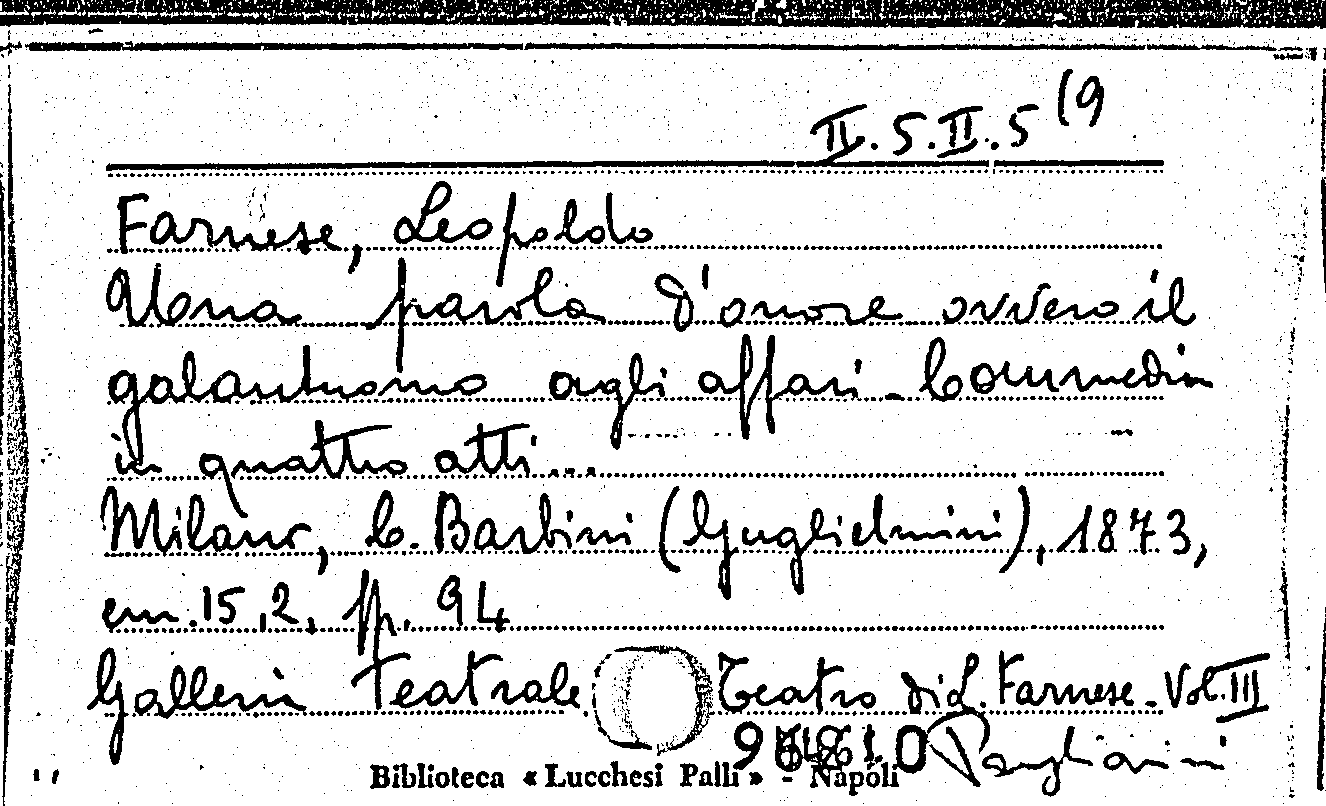 II.5.II.5 (9
Farnese, Leopoldo
Una parola d'onore ovvero il
galantuomo agli affari - Commedia
in quattro atti...
Milano, C. Barbini (Guglielmini), 1873,
cm.15,2, pp. 94
Galleria Teatrale Teatro di L. Farnese - Vol. III
Biblioteca « Lucchesi Palli » - Napoli